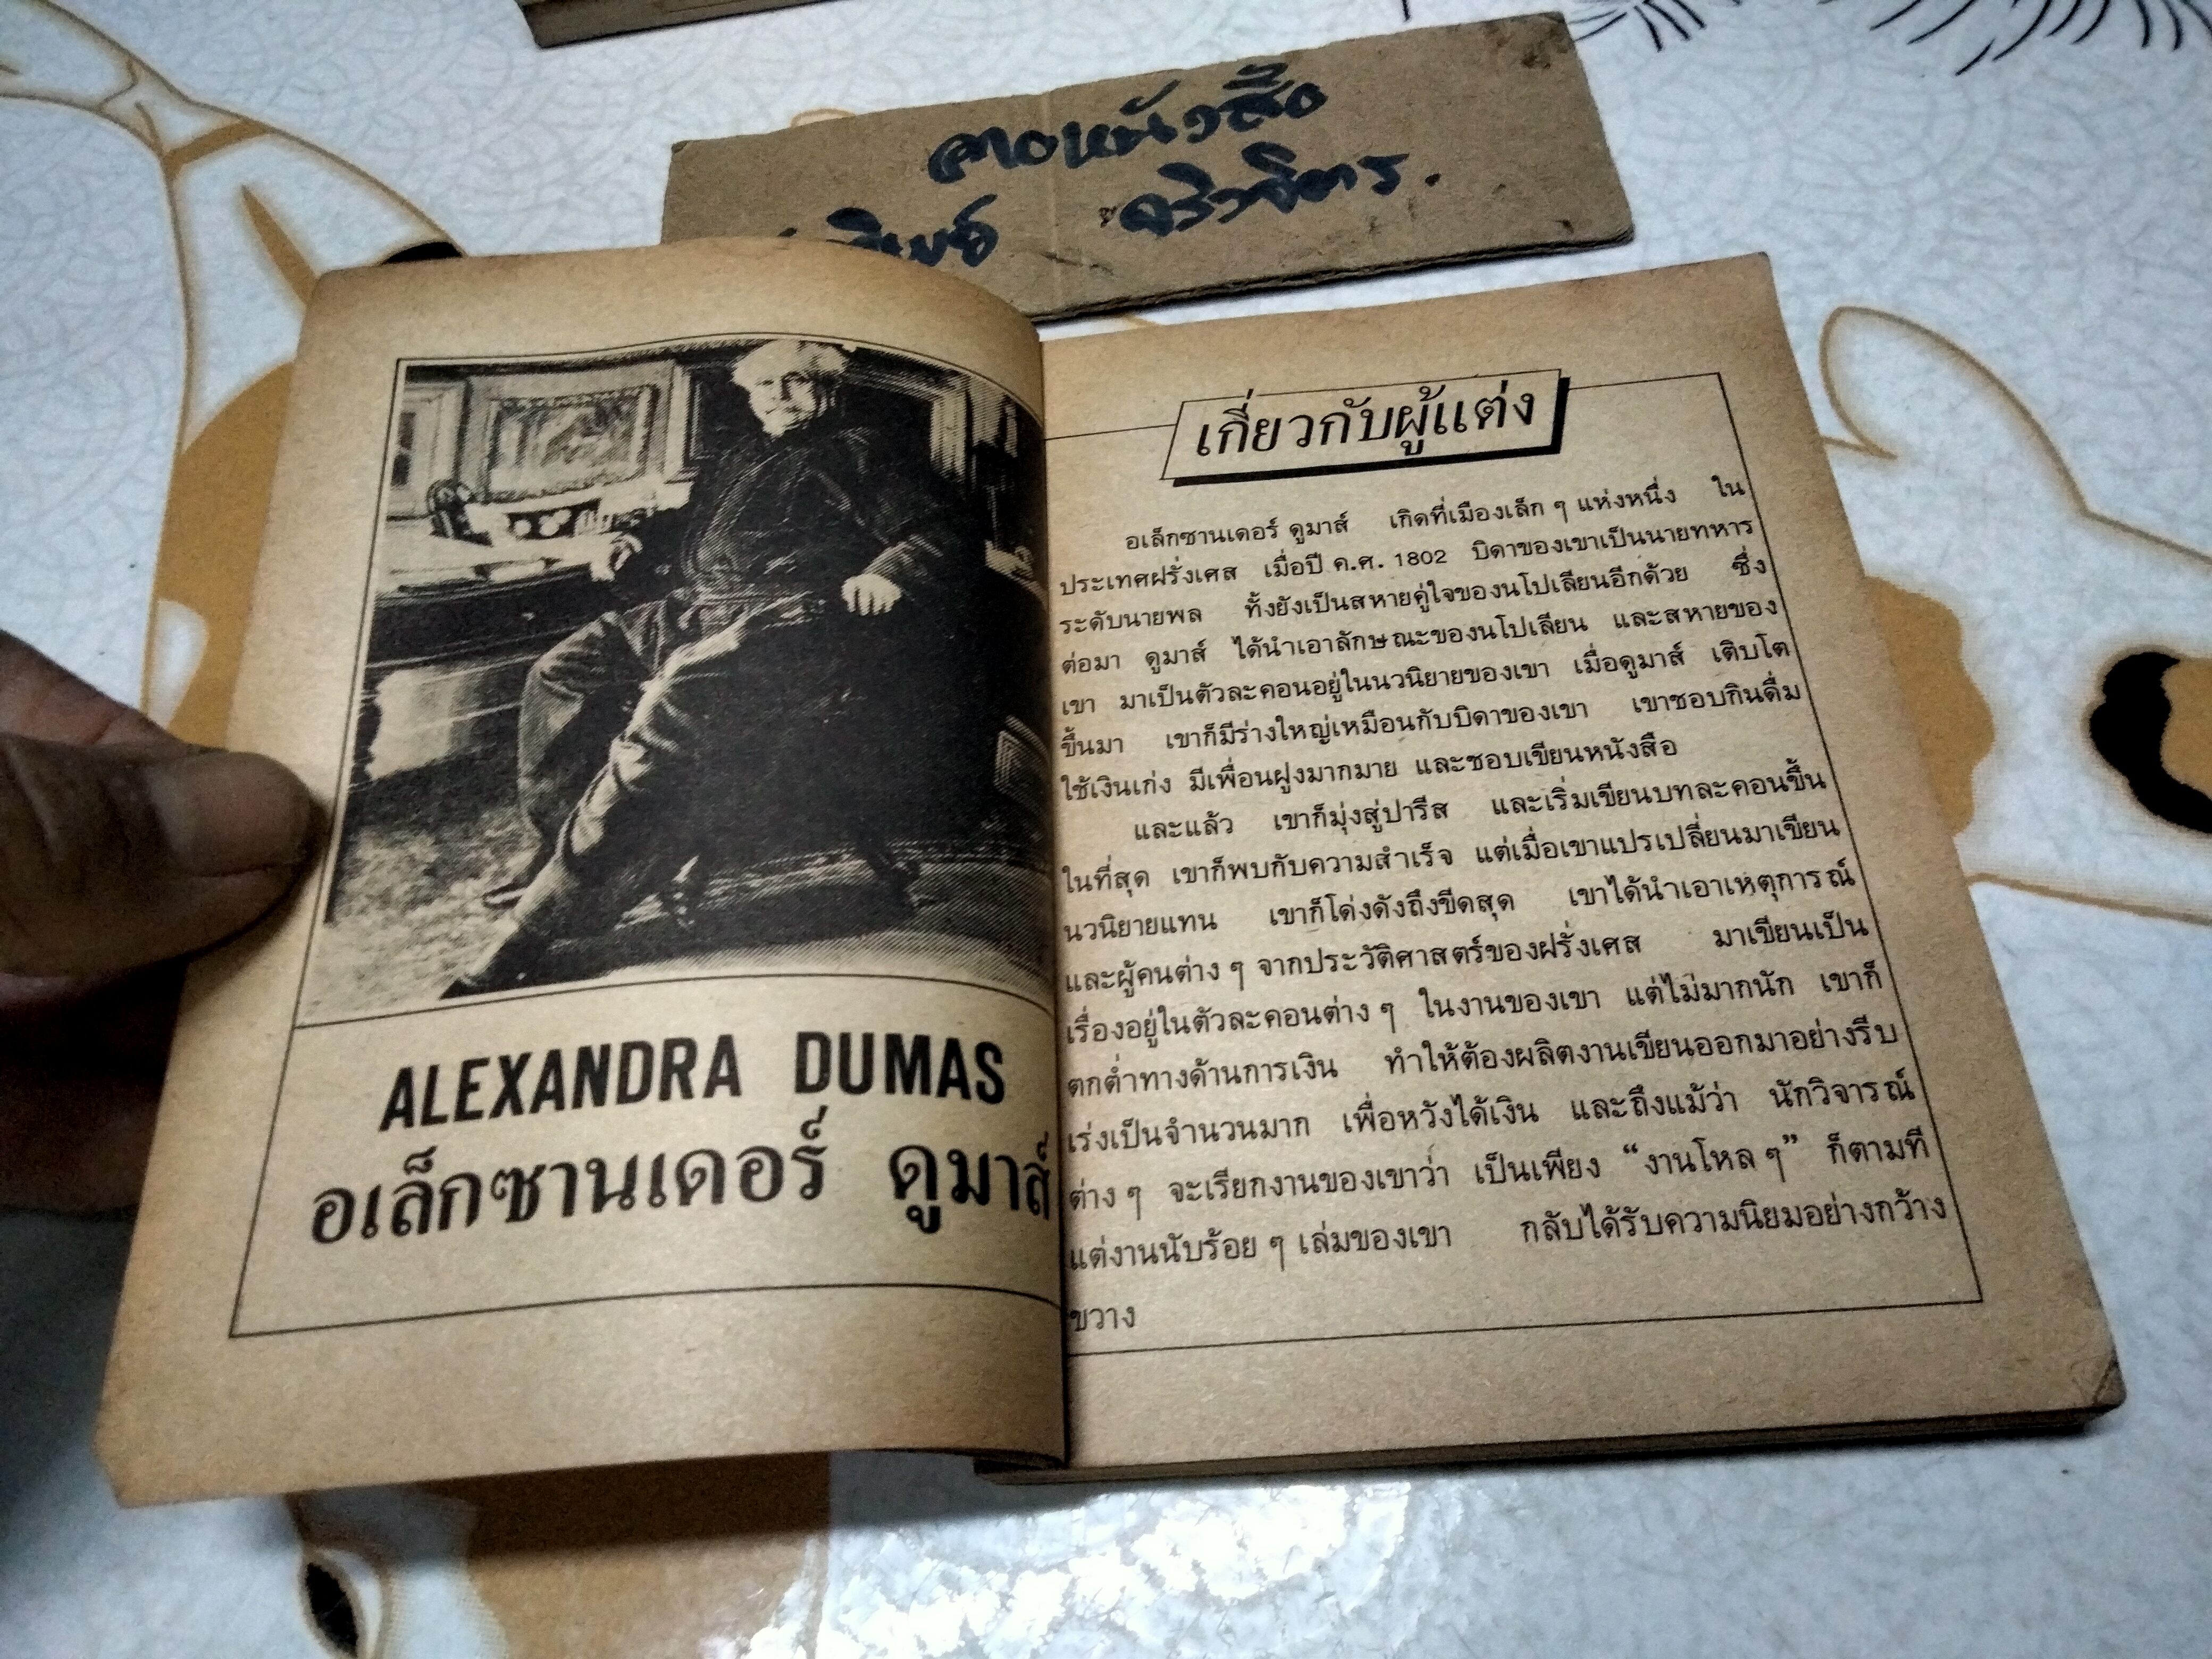 ALEXANDRA DUMAS
อเล็กซานเดอร์ ดูมาส์
เกี่ยวกับผู้แต่ง
อเล็กซานเดอร์ ดูมาส์ เกิดที่เมืองเล็ก ๆ แห่งหนึ่ง ใน
ประเทศฝรั่งเศส เมื่อปี ค.ศ. 1802 บิดาของเขาเป็นนายทหาร
ระดับนายพล ทั้งยังเป็นสหายคู่ใจของนโปเลียนอีกด้วย ซึ่ง
ต่อมา ดูมาส์ ได้นำเอาลักษณะของนโปเลียน และสหายของ
เขา มาเป็นตัวละคอนอยู่ในนวนิยายของเขา เมื่อดูมาส์ เติบโต
ขึ้นมา เขาก็มีร่างใหญ่เหมือนกับบิดาของเขา เขาชอบกินดื่ม
ใช้เงินเก่ง มีเพื่อนฝูงมากมาย และชอบเขียนหนังสือ
และแล้ว เขาก็มุ่งสู่ปารีส และเริ่มเขียนบทละคอนขึ้น
ในที่สุด เขาก็พบกับความสำเร็จ แต่เมื่อเขาแปรเปลี่ยนมาเขียน
นวนิยายแทน เขาก็โด่งดังถึงขีดสุด เขาได้นำเอาเหตุการณ์
และผู้คนต่าง ๆ จากประวัติศาสตร์ของฝรั่งเศส มาเขียนเป็น
เรื่องอยู่ในตัวละคอนต่าง ๆ ในงานของเขา แต่ไม่มากนัก เขาก็
ตกต่ำทางด้านการเงิน ทำให้ต้องผลิตงานเขียนออกมาอย่างรีบ
เร่งเป็นจำนวนมาก เพื่อหวังได้เงิน และถึงแม้ว่า นักวิจารณ์
ต่าง ๆ จะเรียกงานของเขาว่า เป็นเพียง “งานโหล ๆ” ก็ตามที
แต่งานนับร้อย ๆ เล่มของเขา กลับได้รับความนิยมอย่างกว้าง
ขวาง